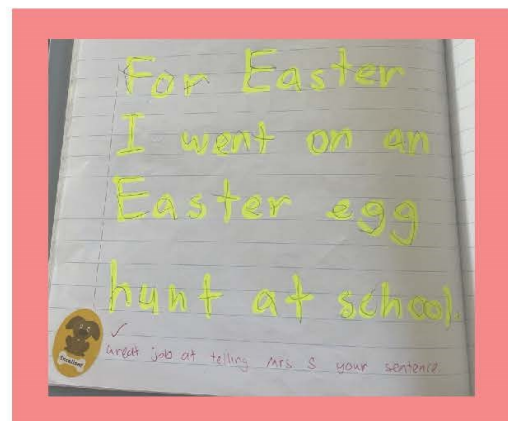 For Easter
I went on an
Easter egg
hunt at school.
Excellent
great job at telling Mrs. S your sentence